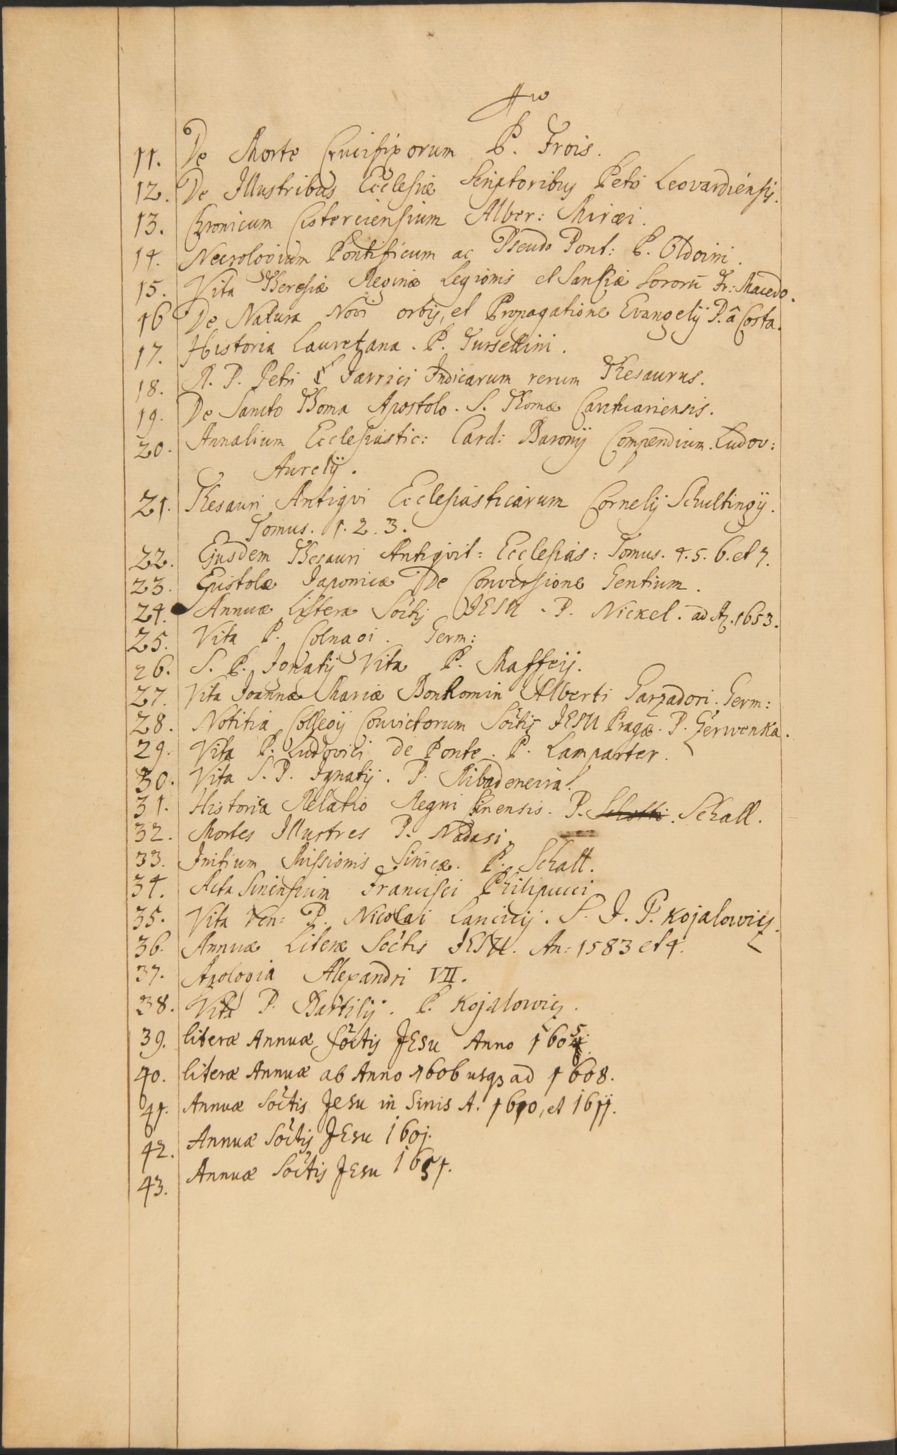 11. De Morte Crucifixorum P. Frois.
12. De Illustribus Ecclesiæ Scriptoribus Petri Leovardiensis.
13. Chronicum Cisterciensium Alber: Miræi.
14. Necrologium Pontificum ac Pseudo Pont: P. Oldoini.
15. Vita Theresiæ Reginæ Legionis et Sanctiæ Sororū Fr: Macedo.
16 De Natura Novi orbis, et Propagatione Evangelij P. â Costa.
17. Historia Lauretana. P. Tursellini.
18. R. P. Petri Jarrici Indicarum rerum Thesaurus.
19. De Sancto Thoma Apostolo. S. Thomæ Cantuariensis.
20. Annalium Ecclesiastic: Card: Baronij Compendium. Ludov:
Aurelij.
21. Thesauri Antiqui Ecclesiasticarum Cornelij Schultingij.
Tomus. 1. 2. 3.
22. Ejusdem Thesauri Antiquit: Ecclesias: Tomus. 4. 5. 6. et 7.
23. Epistolæ Japonicæ De Conversione Gentium.
24. Annuæ Litteræ Soctis JESU. P. Nickel. ad A. 1653.
25. Vita P. Colnagi. Germ:
26. S. P. Ignatij Vita P. Maffeij.
27. Vita Joannæ Mariæ Bonhomin Alberti Garzadori. Germ:
28. Notitia Collegij Convictorum Soctis JESU Pragæ. P. Gerwenka.
29. Vita P. Ludovici de Ponte. P. Lamparter.
30. Vita S. P. Ignatij. P. Ribadeneira.
31. Historica Relatio Regni Sinensis. P. Schall.
32. Mortes Illustres P. Nadasi
33. Initium Missionis Sinicæ. P. Schall.
34. Acta Sinensium Francisci Philipucci
35. Vita Ven: P. Nicolai Lancicij. S. J. P. Kojalowicz.
36. Annuæ Literæ Soctis JESU. An: 1583 et 4.
37. Apologia Alexandri VII.
38. Vita P. Bartilij. P. Kojalowicz.
39. literæ Annuæ Soctis Jesu Anno
40. literæ Annuæ ab Anno 1606 usq3 ad 1608.
41. Annuæ Soctis Jesu in Sinis A. 1610, et 1611.
42. Annuæ Soctis Jesu 1601.
43. Annuæ Soctis Jesu 1654.